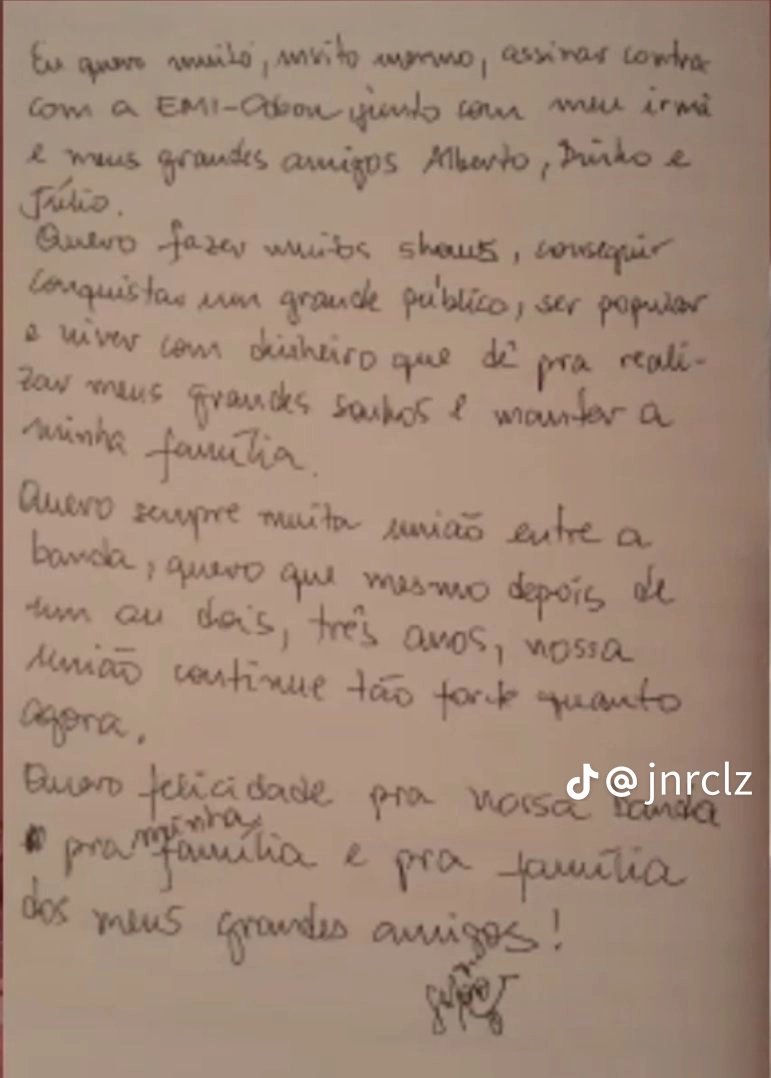 Eu quero muito, muito mesmo, assinar contra
com a EMI-Odeon junto com meu irmã
e meus grandes amigos Alberto, Dinho e
Júlio.
Quero fazer muitos shows, conseguir
conquistar um grande público, ser popular
e viver com dinheiro que dê pra reali-
zar meus grandes sonhos e manter a
minha família.
Quero sempre muita união entre a
banda, quero que mesmo depois de
um ou dois, três anos, nossa
união continue tão forte quanto
agora.
Quero felicidade pra nossa banda
pra minha família e pra família
dos meus grandes amigos!
@jnrclz